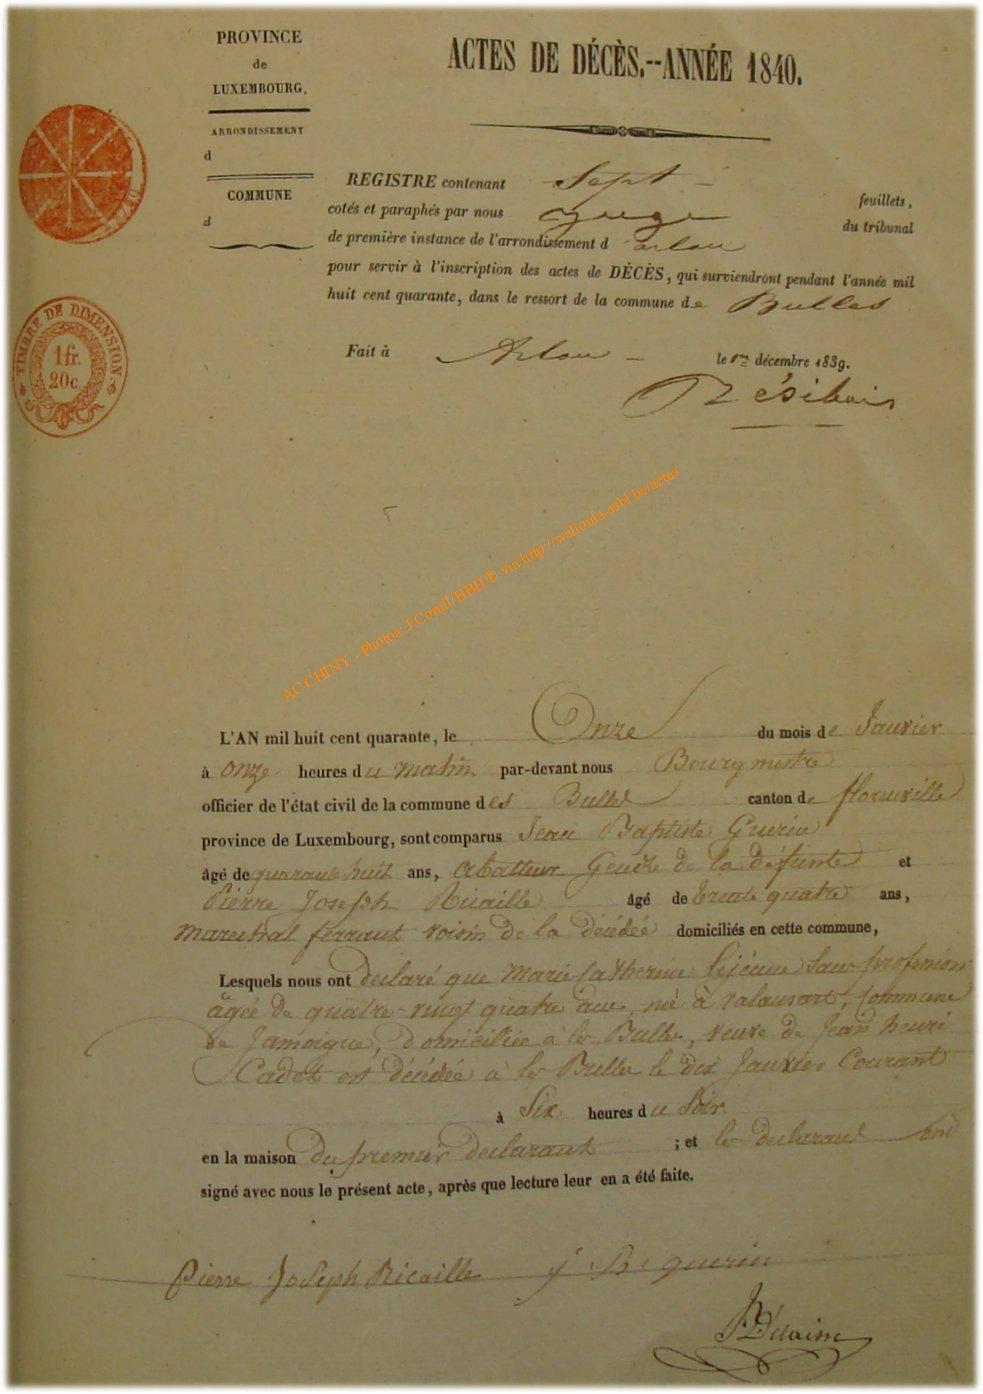 PROVINCE
de
LUXEMBOURG.
ARRONDISSEMENT
d
COMMUNE
d
TIMBRE DE DIMENSION
1 fr.
20 c.
ACTES DE DÉCÈS.--ANNÉE 1840.
REGISTRE contenant Sept feuillets,
cotés et paraphés par nous juge du tribunal
de première instance de l'arrondissement d arlon
pour servir à l'inscription des actes de DÉCÈS, qui surviendront pendant l'année mil
huit cent quarante, dans le ressort de la commune de Bulles
Fait à Arlon le 1er décembre 1839.
Résibois
AC CHINY - Photos: J.Cornil/HBH ® via http://wallonia-asbl.be/actes
L'AN mil huit cent quarante, le Onze du mois de Janvier
à onze heures du matin par-devant nous Bourgmestre
officier de l'état civil de la commune des Bulles canton de florenville
province de Luxembourg, sont comparus Jean Baptiste Guerin
âgé de quarante huit ans, abatteur Gendre de la défunte et
Pierre Joseph Ricaille âgé de trente quatre ans,
marechal ferrant voisin de la décédée domiciliés en cette commune,
Lesquels nous ont declaré que Marie Catherine Lejeune Sans profession
agée de quatre-vingt quatre ans, née à valansart, Commune
de Jamoigne, Domiciliée à les Bulles, veuve de Jean henri
Cadet est décédée à les Bulles le dix Janvier Courant
à Six heures du Soir
en la maison du premier declarant ; et les declarants ont
signé avec nous le présent acte, après que lecture leur en a été faite.
Pierre Joseph Ricaille j B guerin